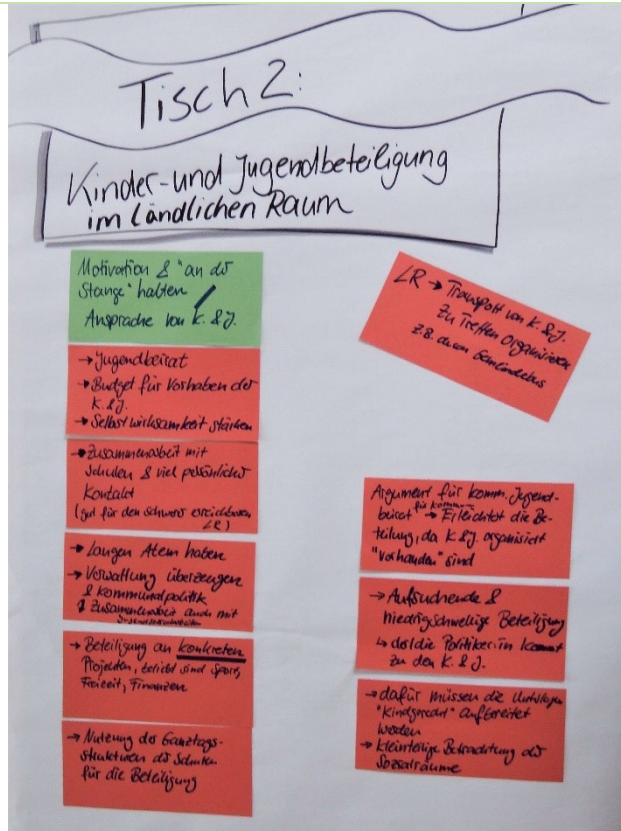 Tisch 2:
Kinder- und Jugendbeteiligung
im Ländlichen Raum
Motivation & "an der
Stange" halten /
Ansprache von K. & J.
→ Jugendbeirat
→ Budget für Vorhaben der
K. & J.
→ Selbstwirksamkeit stärken
→ Zusammenarbeit mit
Schulen & viel persönlicher
Kontakt
(gut für den schwer erreichbaren
LR)
→ Langen Atem haben
→ Verwaltung überzeugen
& Kommunalpolitik
Zusammenarbeit auch mit
→ Beteiligung an konkreten
Projekten, beliebt sind Sport,
Freizeit, Finanzen
→ Nutzung der Ganztags-
strukturen der Schulen
für die Beteiligung
LR → Transport von K. & J.
zu Treffen organisieren
z.B. durch Gemeindebus
Argument für komm. Jugend-
beirat → Erleichtert die Be-
teilung, da K. & J. organisiert
"vorhanden" sind
→ Aufsuchende &
niedrigschwellige Beteiligung
↳ der/die Politiker:in kommt
zu den K. & J.
→ dafür müssen die Unterlagen
"Kindgerecht" aufbereitet
werden
→ kleinteilige Betrachtung der
Sozialräume